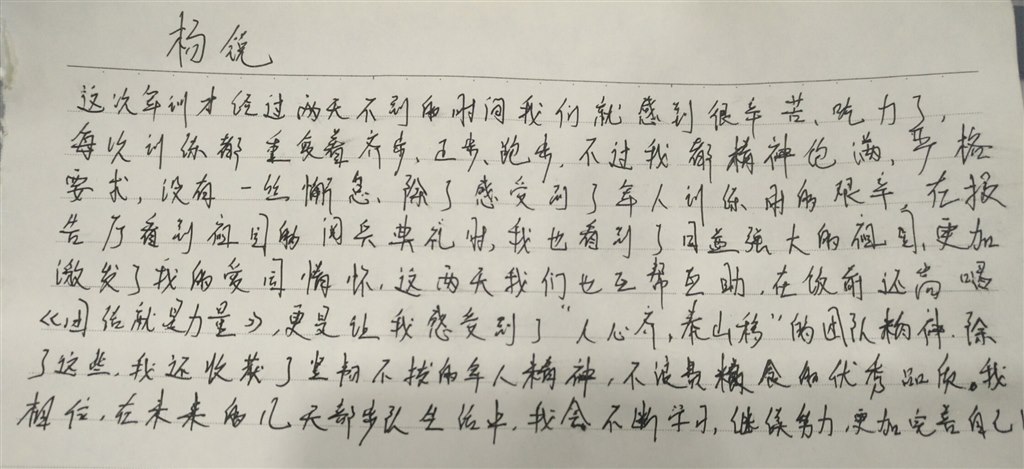 杨锐
这次军训才经过两天不到的时间我们就感到很辛苦、吃力了,
每次训练都重复着齐步、正步、跑步,不过我都精神饱满,严格
要求,没有一丝懈怠、除了感受到了军人训练时的艰辛,在报
告厅看到祖国的阅兵典礼时,我也看到了日益强大的祖国,更加
激发了我的爱国情怀,这两天我们也互帮互助,在饭前还高唱
《团结就是力量》,更是让我感受到了“人心齐,泰山移”的团队精神.除
了这些,我还收获了坚韧不拔的军人精神,不浪费粮食的优秀品质。我
相信,在未来的几天部步队生活中,我会不断学习,继续努力,更加完善自己!